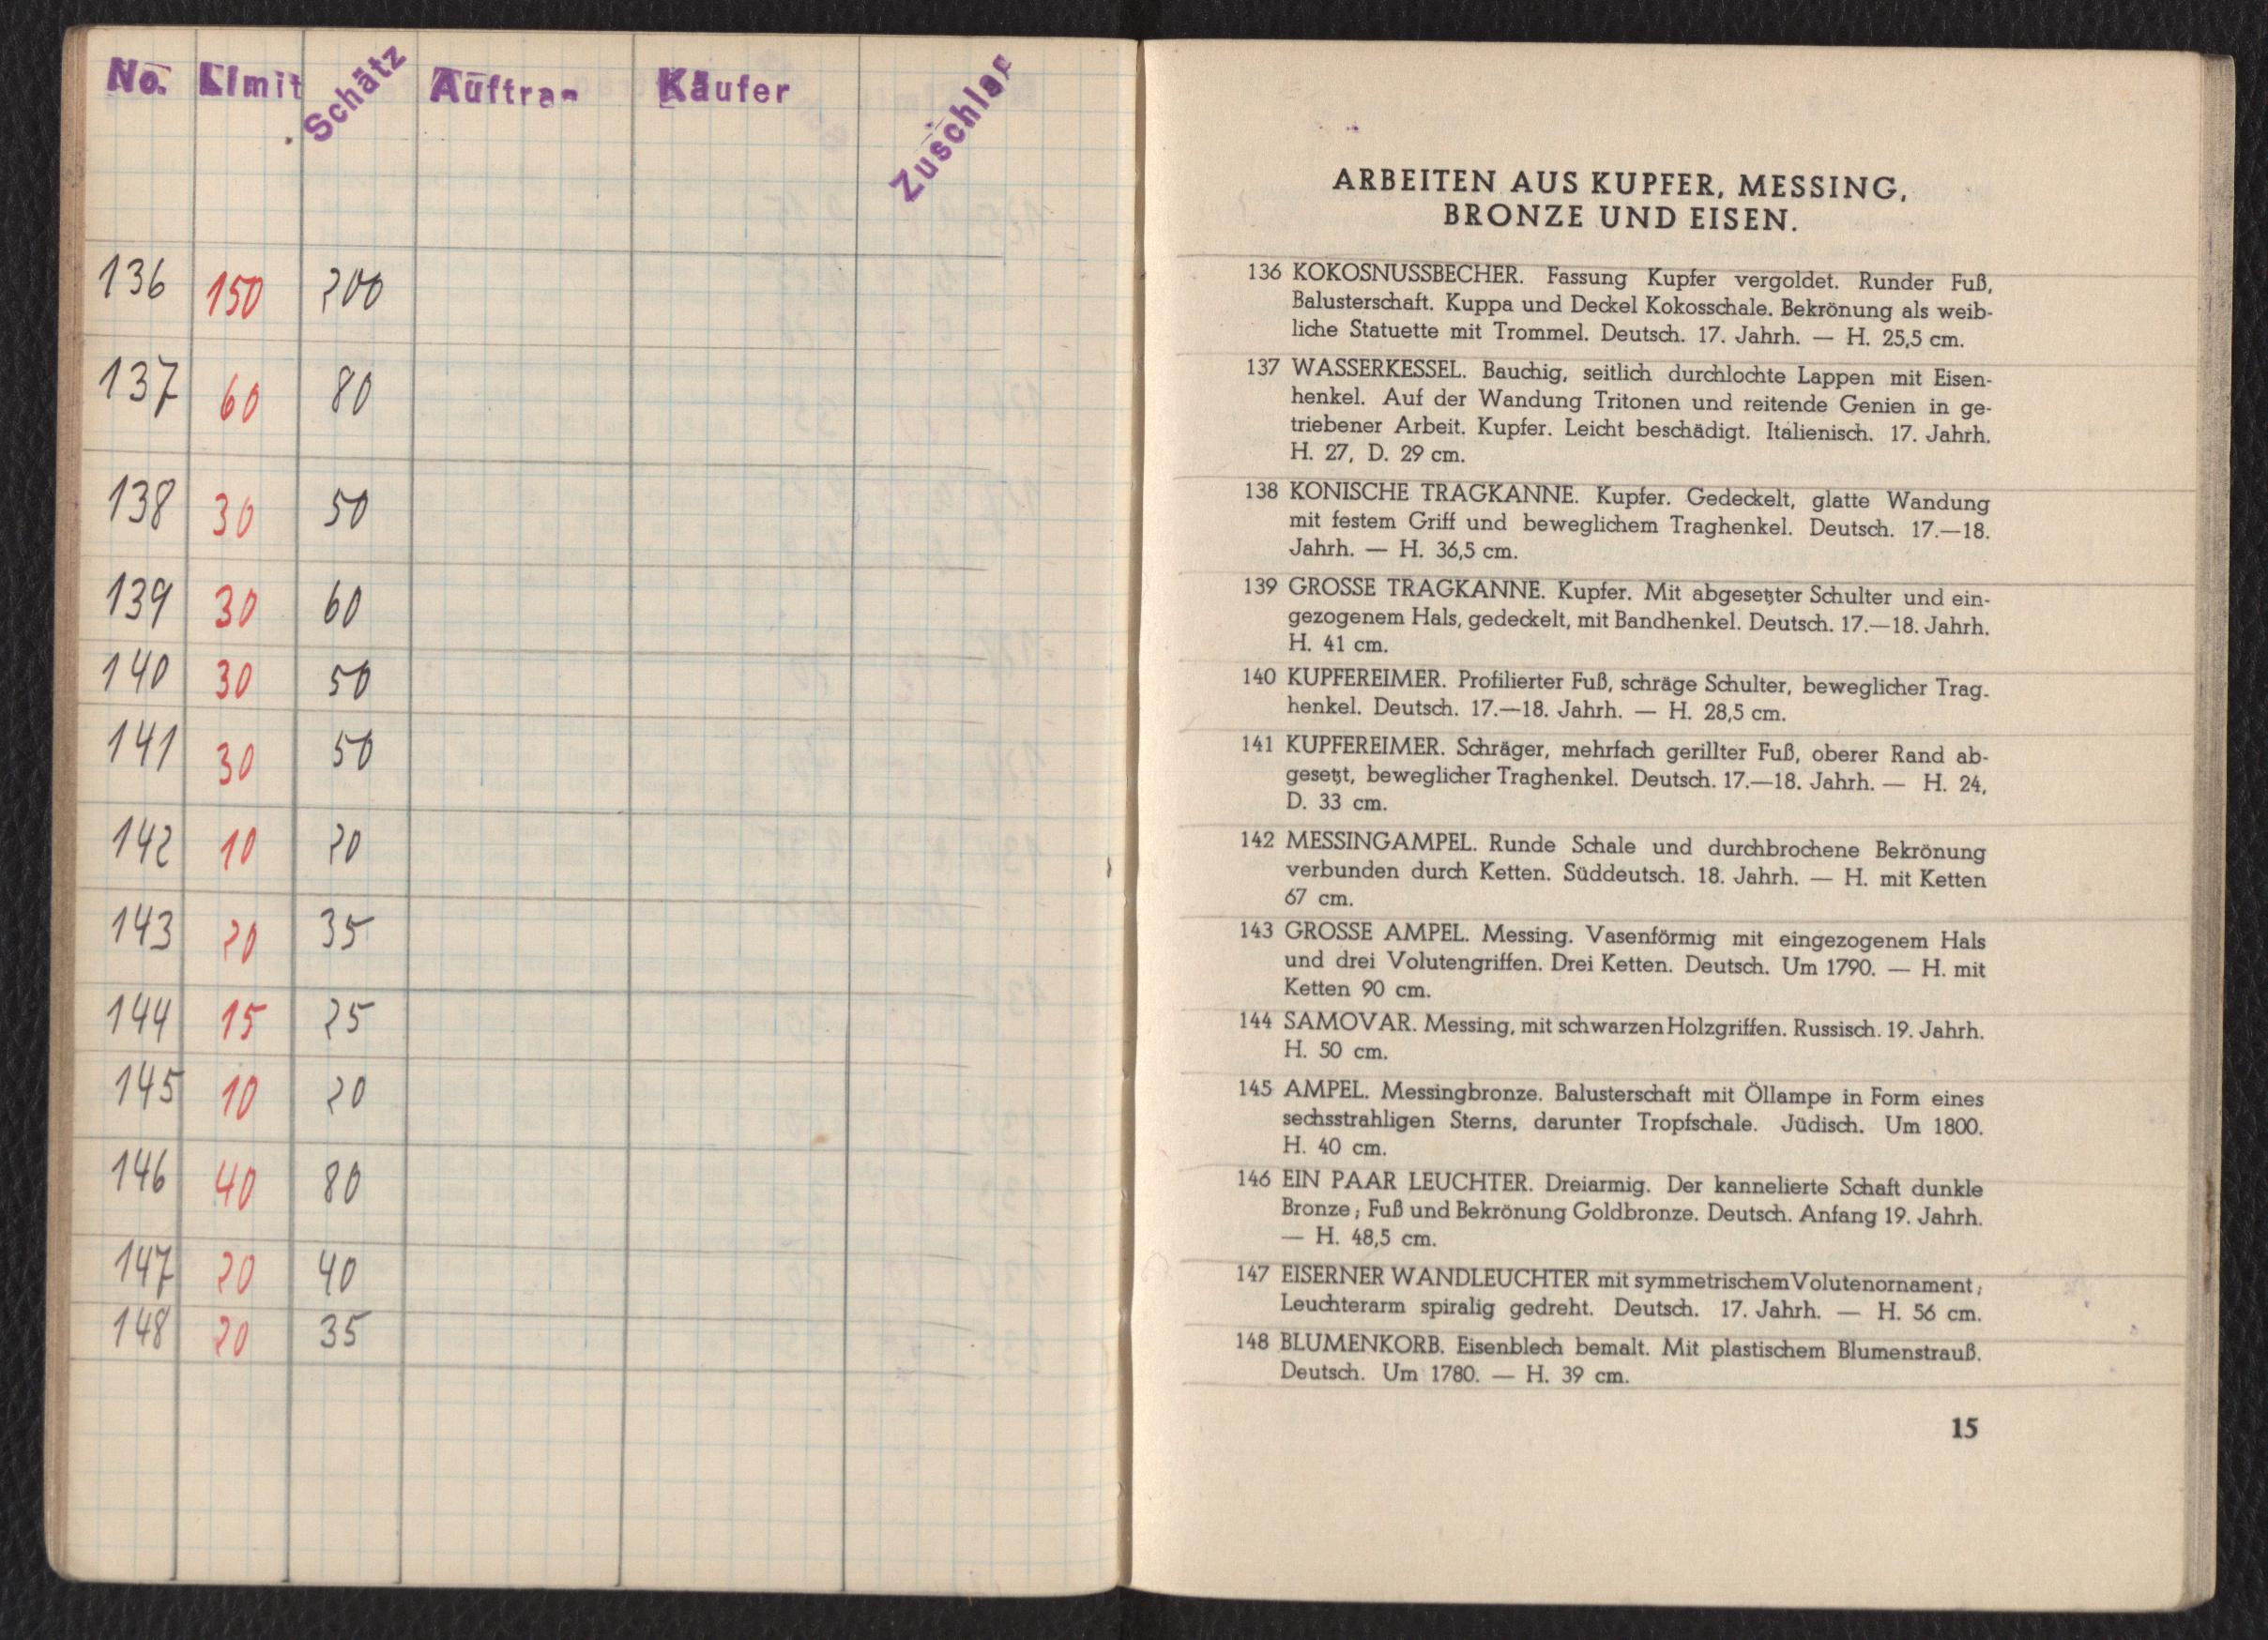 No. Limit Schätz Auftrag Käufer Zuschlag
136 150 200
137 60 80
138 30 50
139 30 60
140 30 50
141 30 50
142 10 20
143 20 35
144 15 25
145 10 20
146 40 80
147 20 40
148 20 35
ARBEITEN AUS KUPFER, MESSING,
BRONZE UND EISEN.
136 KOKOSNUSSBECHER. Fassung Kupfer vergoldet. Runder Fuß,
Balusterschaft. Kuppa und Deckel Kokosschale. Bekrönung als weib-
liche Statuette mit Trommel. Deutsch. 17. Jahrh. — H. 25,5 cm.
137 WASSERKESSEL. Bauchig, seitlich durchlochte Lappen mit Eisen-
henkel. Auf der Wandung Tritonen und reitende Genien in ge-
triebener Arbeit. Kupfer. Leicht beschädigt. Italienisch. 17. Jahrh.
H. 27, D. 29 cm.
138 KONISCHE TRAGKANNE. Kupfer. Gedeckelt, glatte Wandung
mit festem Griff und beweglichem Traghenkel. Deutsch. 17.—18.
Jahrh. — H. 36,5 cm.
139 GROSSE TRAGKANNE. Kupfer. Mit abgesetzter Schulter und ein-
gezogenem Hals, gedeckelt, mit Bandhenkel. Deutsch. 17.—18. Jahrh.
H. 41 cm.
140 KUPFEREIMER. Profilierter Fuß, schräge Schulter, beweglicher Trag-
henkel. Deutsch. 17.—18. Jahrh. — H. 28,5 cm.
141 KUPFEREIMER. Schräger, mehrfach gerillter Fuß, oberer Rand ab-
gesetzt, beweglicher Traghenkel. Deutsch. 17.—18. Jahrh. — H. 24,
D. 33 cm.
142 MESSINGAMPEL. Runde Schale und durchbrochene Bekrönung
verbunden durch Ketten. Süddeutsch. 18. Jahrh. — H. mit Ketten
67 cm.
143 GROSSE AMPEL. Messing. Vasenförmig mit eingezogenem Hals
und drei Volutengriffen. Drei Ketten. Deutsch. Um 1790. — H. mit
Ketten 90 cm.
144 SAMOVAR. Messing, mit schwarzen Holzgriffen. Russisch. 19. Jahrh.
H. 50 cm.
145 AMPEL. Messingbronze. Balusterschaft mit Öllampe in Form eines
sechsstrahligen Sterns, darunter Tropfschale. Jüdisch. Um 1800.
H. 40 cm.
146 EIN PAAR LEUCHTER. Dreiarmig. Der kannelierte Schaft dunkle
Bronze; Fuß und Bekrönung Goldbronze. Deutsch. Anfang 19. Jahrh.
— H. 48,5 cm.
147 EISERNER WANDLEUCHTER mit symmetrischem Volutenornament;
Leuchterarm spiralig gedreht. Deutsch. 17. Jahrh. — H. 56 cm.
148 BLUMENKORB. Eisenblech bemalt. Mit plastischem Blumenstrauß.
Deutsch. Um 1780. — H. 39 cm.
15